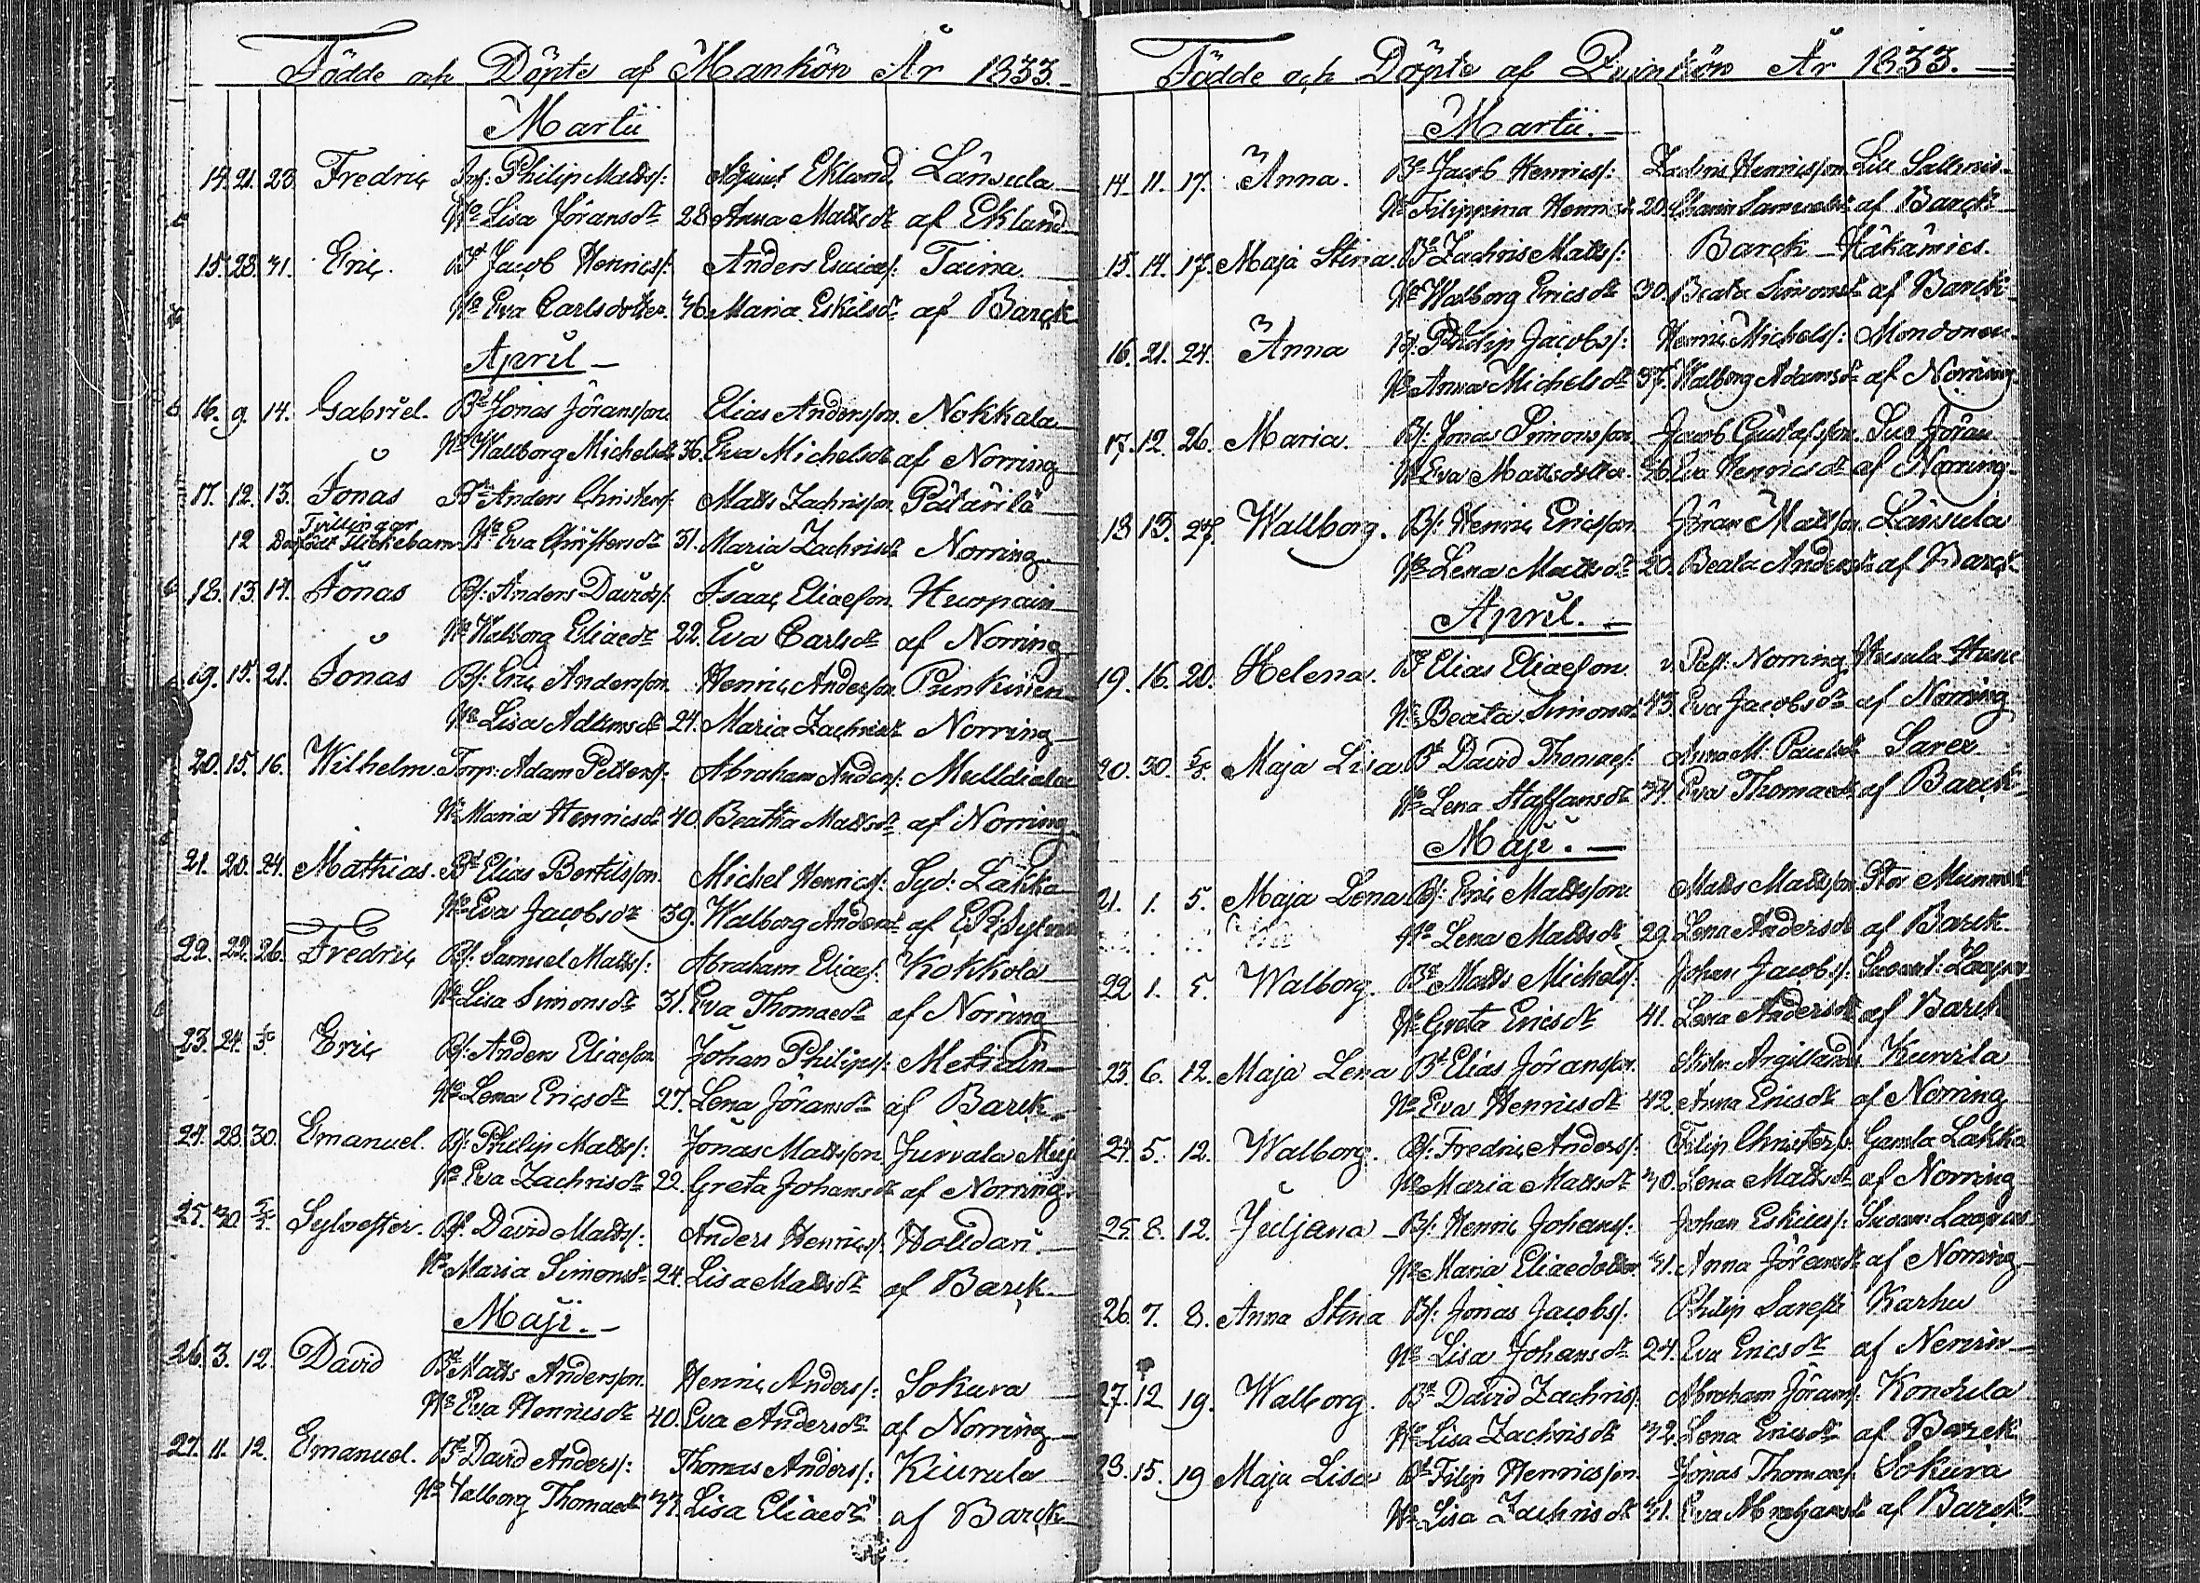 Födde och Döpte af Mankön År 1833.
Martii
14. 21. 23. Fredric Philip Matts: Adjunct Eklund Länsula
Hu Lisa Jöransdr 28. Anna Mattsdr af Eklund
15. 23. 31. Eric. Bd Jacob Henrics: Anders Taina
Hu Eva Carlsdotter 36. Maria Eskilsdr af Barck
April
16. 9. 14. Gabriel. Bd Jonas Jöransson Elias Andersson Nokkala
Hu Wallborg Michelsdr 36. Eva Michelsdr af Norring
17. 12. 13. Jonas Bd Anders Christers: Matts Zachrisson
Tvillingar
12 Dödfödt flickebarn Hu Eva Christersdr 31. Maria Zachrisdr Norring
18. 13. 14. Jonas Bs: Anders Davids: Isaac Eliaesson
Hu Walborg Eliaedr 22. Eva Carlsdr af Norring
19. 15. 21. Jonas Bs: Eric Andersson Henric Andersson Pinkinen
Hu Lisa Adamsdr 24. Maria Zachrisdr Norring
20. 15. 16. Wilhelm Torp: Adam Petters: Abraham Anders: Mulldiala
Hu Maria Henricsdr 40. Beatha Mattsdr af Norring
21. 20. 24. Mathias. Bd Elias Bertilsson Michel Henrics: Syd: Lakka
Hu Eva Jacobsdr 39. Walborg Andersdr af
22. 22. 26. Fredric Bs: Samuel Matts: Abraham Eliae: Kokkola
Hu Lisa Simonsdr 31. Eva Thomaedr af Norring
23. 24. Eric Bs: Anders Eliaesson Johan Philips: Metiäin
Hu Lena Ericsdr 27. Lena Jöransdr af Barck
24. 28. 30. Emanuel. Bs: Philip Matts: Jonas Mattsson Jurvala
Hu Eva Zachrisdr 22. Greta Johansdr af Norring
25. 30. Sylvester. Bs: David Matts: Anders Henrics: Holldari
Hu Maria Simonsdr 24. Lisa Mattsdr af Barck
Maji.
26. 3. 12. David Bd Matts Andersson Henric Anders: Sokura
Hu Eva Henricsdr 40. Eva Andersdr af Norring
27. 11. 12. Emanuel. Bd David Anders: Thomas Anders: Kiurula
Hu Valborg Thomaedr 37. Lisa Eliaedr af Barck
Födde och Döpte af Qvinkön År 1833.
Martii.
14. 11. 17. Anna. Bd Jacob Henrics: Zachris Henricsson Lill
Hu Filippina 20. af Barck
15. 14. 17. Maja Stina Bd Zachris Matts: Barck Häkämies
Hu Walborg Ericsdr 30. Beata Simonsdr af Barck
16. 21. 24. Anna Bs: Philip Jacobs: Henric Michels: Mondonen
Hu Anna Michelsdr 37. Walborg Adamsdr af Norring
17. 12. 26. Maria. Bs: Jonas Simonsson Jacob Gustafsson Suo Jöran
Hu Eva Mattsdotter 36. Eva Henricsdr af Norring
18 15. 24. Wallborg. Bs: Henric Ericsson Jöran Mattsson Länsula
Hu Lena Mattsdr 20. Beata Andersdr af Barck
April.
19. 16. 20. Helena. Bd Elias Eliaeson v. Past: Norring
Hu Beata Simonsdr 43. Eva Jacobsdr af Norring
20. 30. Maja Lisa Bd David Thomaes: Anna M: Paulsdr Sarex
Hu Lena Staffansdr 34. Eva Thomaedr af Barck
Maji.
21. 1. 5. Maja Lena Bs: Eric Mattsson Matts Mattsson Stor
Hu Lena Mattsdr 29. Lena Andersdr af Barck
22 1. 5. Walborg. Bd Matts Michels: Johan Jacobs:
Hu Greta Ericsdr 41. Lena Andersdr af Barck
23. 6. 12. Maja Lena Bd Elias Jöransson Argillander Kunnila
Hu Eva Henricsdr 42. Anna Ericsdr af Norring
24. 5. 12. Walborg. Bs: Fredric Anders: Filip Christers: Gamla Lakka
Hu Maria Mattsdr 30. Lena Mattsdr af Norring
25. 8. 12. Juljana Bs: Henric Johans: Johan Eskils:
Hu Maria Eliaedotter 31. Anna Jöransdr af Norring
26. 7. 8. Anna Stina Bs: Jonas Jacobs: Philip Karhu
Hu Lisa Johansdr 24. Eva Ericsdr af
27. 12 19. Walborg. Bd David Zachris: Abraham Jörans: Kondula
Hu Lisa Zachrisdr 32. Lena Ericsdr af Barck
28. 15. 19 Maja Lisa Bd Filip Henricsson Jonas Thomaes: Sokura
Hu Lisa Zachrisdr 31. Eva Abrahamsdr af Barck